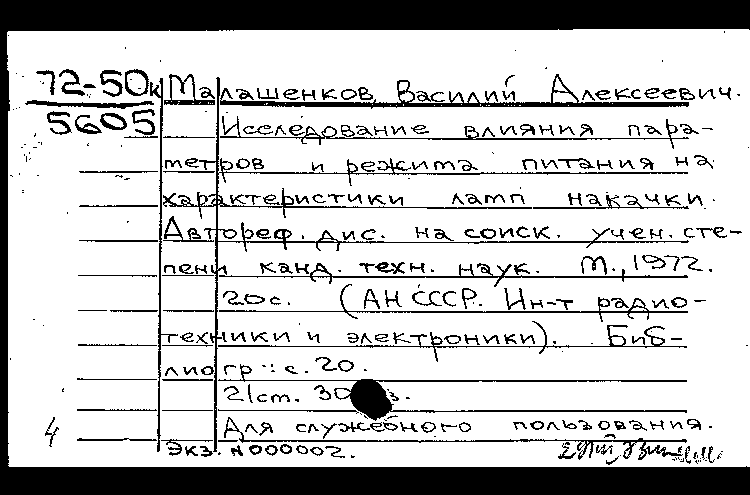 72-50к Малашенков, Василий Алексеевич.
5605 Исследование влияния пара-
метров и режима питания на
характеристики ламп накачки.
Автореф. дис. на соиск. учен. сте-
пени канд. техн. наук. М., 1972.
20с. (АН СССР. Ин-т радио-
техники и электроники). Биб-
лиогр.: с. 20.
21ст. 30 з.
4 Для служебного пользования.
экз. N000002.